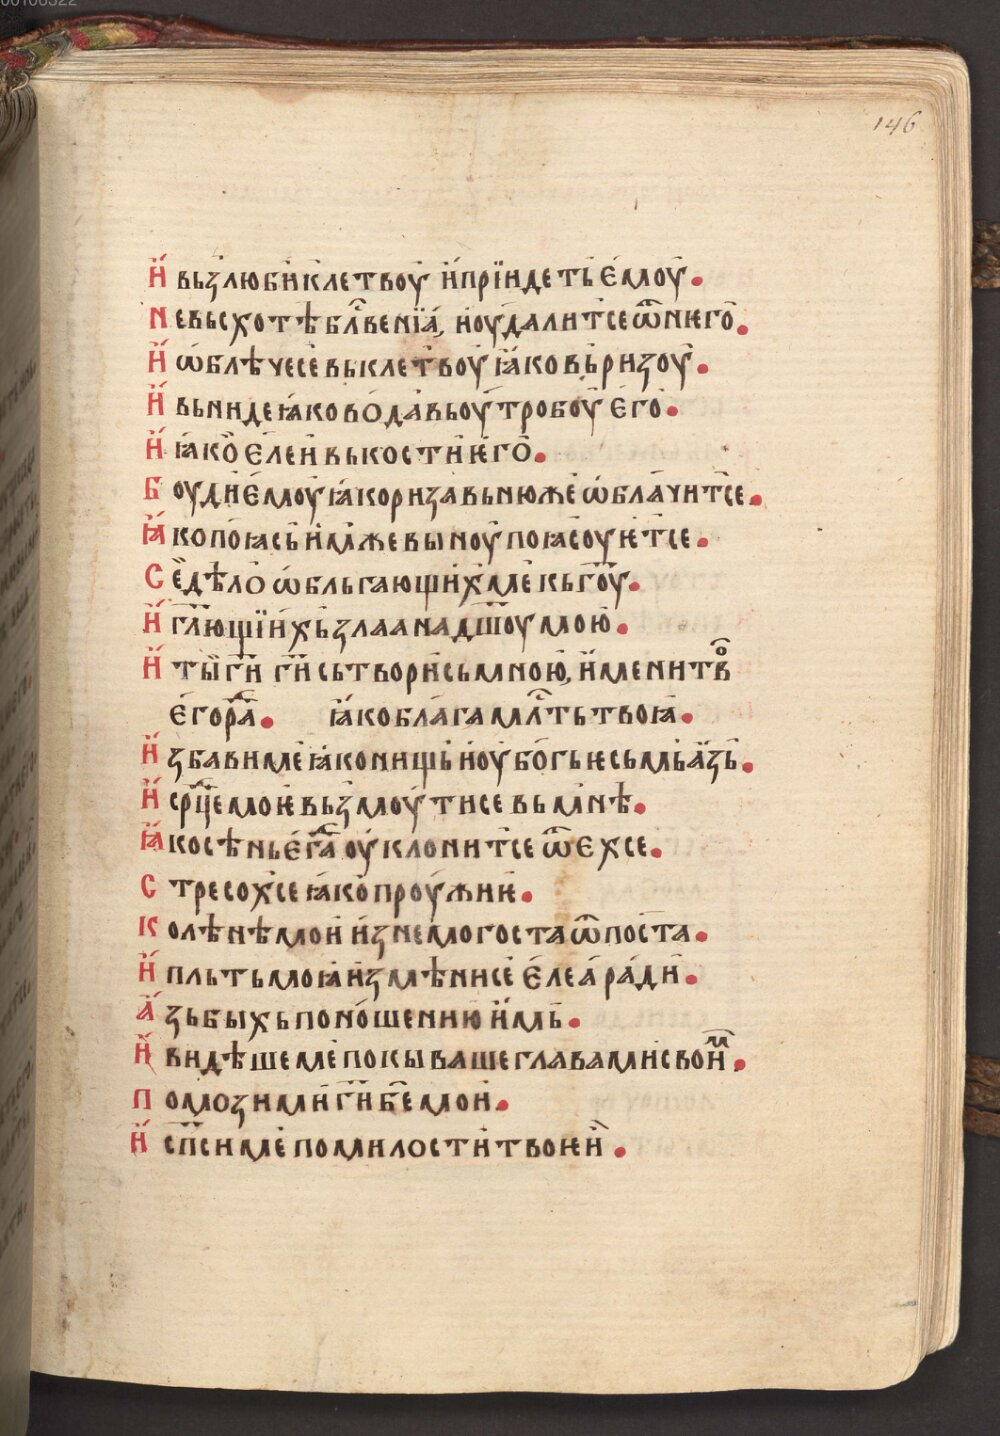 146
И҆ вьзлюби клетвоу и҆ прїидеть є҆моу.
Не вьсхотѣ бл҇венїа, и оудалитсе ѿ нѥго.
И҆ ѡ҆блѣчесе вь клетвоу ꙗ҆ко вь ризоу.
И҆ вьниде ꙗ҆ко вода вь оутробоу є҆го.
И҆ ꙗ҆ко є҆леи вь кости ѥго.
Боуди є҆моу ꙗ҆ко риза вь нюже ѡ҆блачитсе.
Ꙗ҆ко поꙗсь имже вьіноу поꙗсоуѥтсе.
Се дѣло ѡ҆бльгающих ме кь гоу҃.
И҆ гл҃ющїихь злаа на дш҃оу мою.
И҆ ты ги҃ ги҃ сьтвори сь мною, и҆мени твоⷢ҇
є҆го рад҇. ꙗ҆ко блага млⷭ҇ть твоꙗ.
И҆збави ме ꙗ҆ко нищь и оубогь ѥсмь азь.
И҆ срⷣце моѥ вьзмоутисе вь мнѣ.
Ꙗ҆ко сѣнь є҆гⷣа оуклонитсе ѿехсе.
Стресохсе ꙗ҆ко проужиѥ.
Колѣнѣ мои изнемогоста ѿ поста.
И҆ пльть моꙗ измѣнисе є҆леа ради.
А҆зь быхь поношению и҆мь.
И҆ видѣше ме покываше главами своиⷨ.
Помози ми ги҃ бе҃ мои.
И҆ сп҃си ме по милости твоѥи.